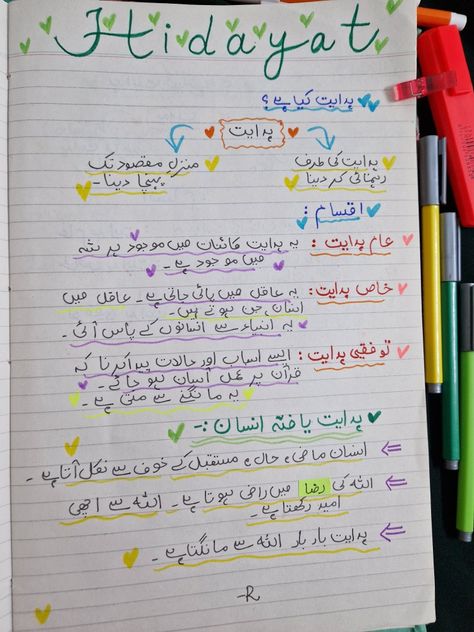 Hidayat
ہدایت کیا ہے؟
ہدایت
ہدایت کی طرف
رہنمائی کر دینا
منزلِ مقصود تک
پہنچا دینا۔
اقسام :
عام ہدایت : یہ ہدایت کائنات میں موجود ہر شہ
میں موجود ہے۔
خاص ہدایت : یہ عاقل میں پائی جاتی ہے۔ عاقل میں
انسان، جن ہوتے ہیں۔
یہ انبیاء سے انسانوں کے پاس آئی۔
توفیقی ہدایت : ایسے اسباب اور حالات پیدا کرنا کہ
قرآن پر عمل آسان ہو جائے۔
یہ مانگنے سے ملتی ہے۔
ہدایت یافتہ انسان :-
انسان ماضی، حال، مستقبل کے خوف سے نکل آتا ہے۔
اللہ کی رضا میں راضی ہوتا ہے۔ اللہ سے اچھی
امید رکھتا ہے۔
ہدایت بار بار اللہ سے مانگتا ہے۔
-R